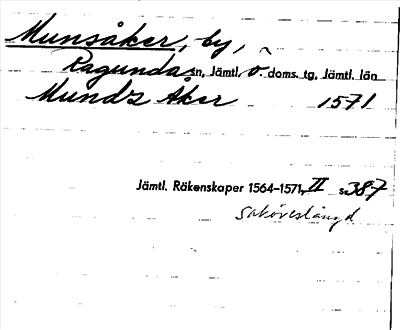 Munsåker, by,
Ragunda sn, Jämtl. ö. doms. tg, Jämtl. län
Munds Åker 1571
Jämtl. Räkenskaper 1564–1571, II s. 387
Saköreslängd